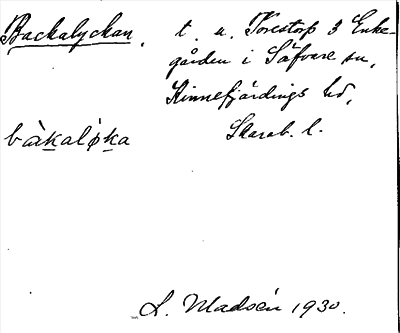 Backalyckan. t. u. Torestorp 3 Enke-
gården i Säfvare sn,
Kinnefjärdings hd,
Skarab. l.
bàkaløka
L. Madsén 1930.